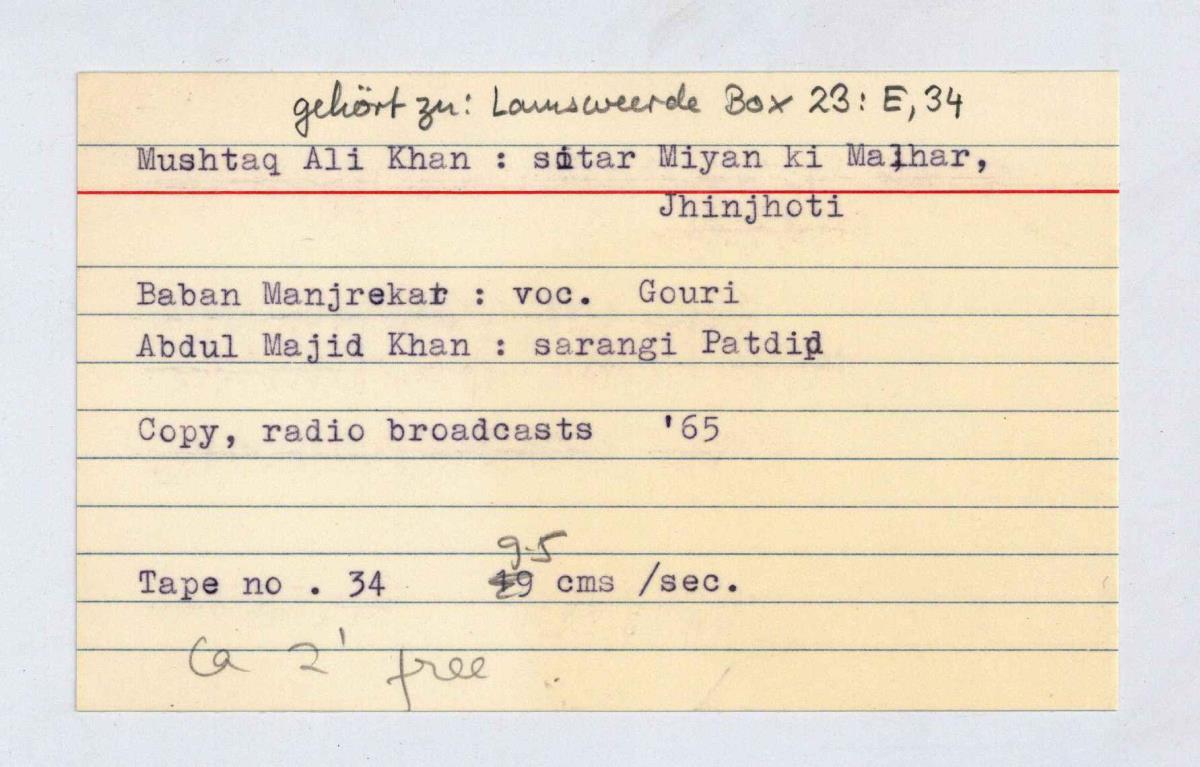 gehört zu: Lamsweerde Box 23: E, 34
Mushtaq Ali Khan : sitar Miyan ki Malhar,
Jhinjhoti
Baban Manjrekar : voc. Gouri
Abdul Majid Khan : sarangi Patdip
Copy, radio broadcasts '65
9.5
Tape no . 34 19 cms /sec.
Ca 2' free